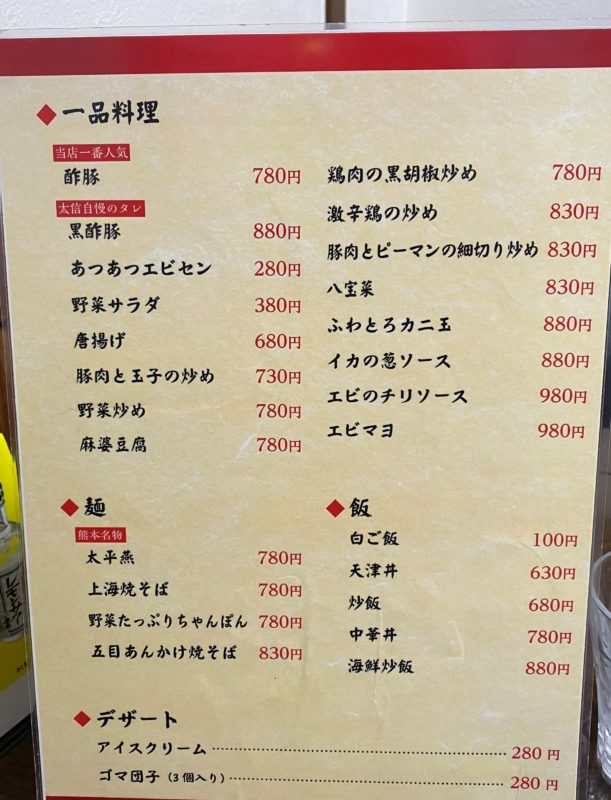 ◆一品料理
当店一番人気
酢豚 780円
太信自慢のタレ
黒酢豚 880円
あつあつエビセン 280円
野菜サラダ 380円
唐揚げ 680円
豚肉と玉子の炒め 730円
野菜炒め 780円
麻婆豆腐 780円
鶏肉の黒胡椒炒め 780円
激辛鶏の炒め 830円
豚肉とピーマンの細切り炒め 830円
八宝菜 830円
ふわとろカニ玉 880円
イカの葱ソース 880円
エビのチリソース 980円
エビマヨ 980円
◆麺
熊本名物
太平燕 780円
上海焼そば 780円
野菜たっぷりちゃんぽん 780円
五目あんかけ焼そば 830円
◆飯
白ご飯 100円
天津丼 630円
炒飯 680円
中華丼 780円
海鮮炒飯 880円
◆デザート
アイスクリーム 280円
ゴマ団子（3個入り） 280円